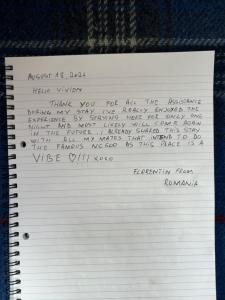 AUGUST 18, 2024
HELLO VIVIEN
THANK YOU FOR ALL THE ASSISTANCE
DURING MY STAY. I'VE REALLY ENJOYED THE
EXPERIENCE BY STAYING HERE FOR ONLY ONE
NIGHT AND MOST LIKELY WILL COME AGAIN
IN THE FUTURE. I ALREADY SHARED THIS STAY
WITH ALL MY MATES THAT INTEND TO DO
THE FAMOUS NC500 AS THIS PLACE IS A
VIBE ♡!!! XOXO
FLORENTIN FROM
ROMANIA